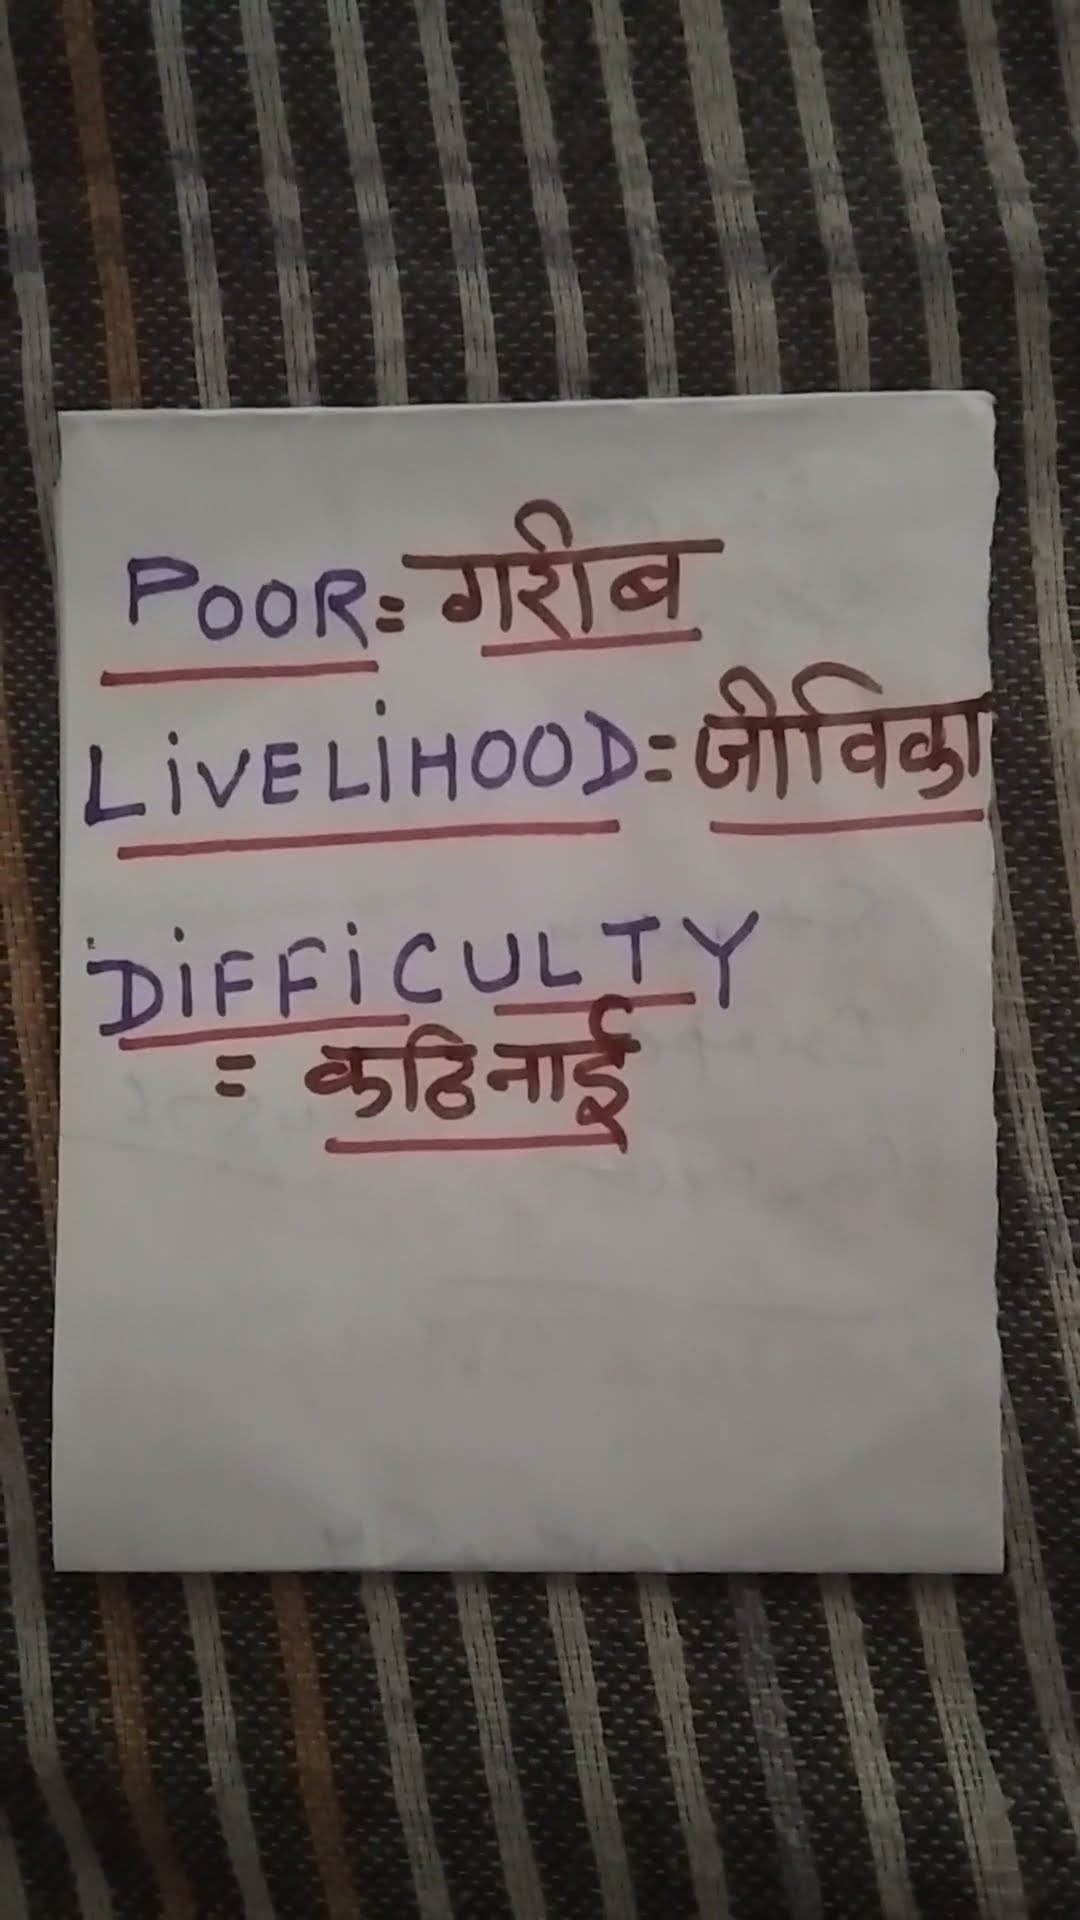 POOR = गरीब
LiVELiHOOD = जीविका
DiFFiCULTY
= कठिनाई